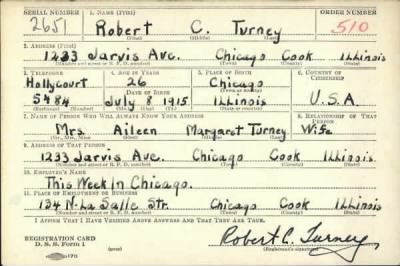 SERIAL NUMBER 1. NAME (Print) ORDER NUMBER
2651 Robert C. Turney 510
(First) (Middle) (Last)
2. ADDRESS (Print)
1233 Jarvis Ave. Chicago Cook Illinois
(Number and street or R. F. D. number) (Town) (County) (State)
3. TELEPHONE 4. AGE IN YEARS 5. PLACE OF BIRTH 6. COUNTRY OF CITIZENSHIP
Hollycourt 26 Chicago
DATE OF BIRTH (Town or county)
5484 July 8 1915 Illinois U.S.A.
(Exchange) (Number) (Mo.) (Day) (Yr.) (State or country)
7. NAME OF PERSON WHO WILL ALWAYS KNOW YOUR ADDRESS 8. RELATIONSHIP OF THAT PERSON
Mrs. Aileen Margaret Turney Wife
(Mr., Mrs., Miss) (First) (Middle) (Last)
9. ADDRESS OF THAT PERSON
1233 Jarvis Ave. Chicago Cook Illinois
(Number and street or R. F. D. number) (Town) (County) (State)
10. EMPLOYER'S NAME
This Week In Chicago.
11. PLACE OF EMPLOYMENT OR BUSINESS
134 N. La Salle Str. Chicago Cook Illinois
(Number and street or R. F. D. number) (Town) (County) (State)
I AFFIRM THAT I HAVE VERIFIED ABOVE ANSWERS AND THAT THEY ARE TRUE.
REGISTRATION CARD
D. S. S. Form 1 (over) Robert C. Turney
(Registrant's signature)